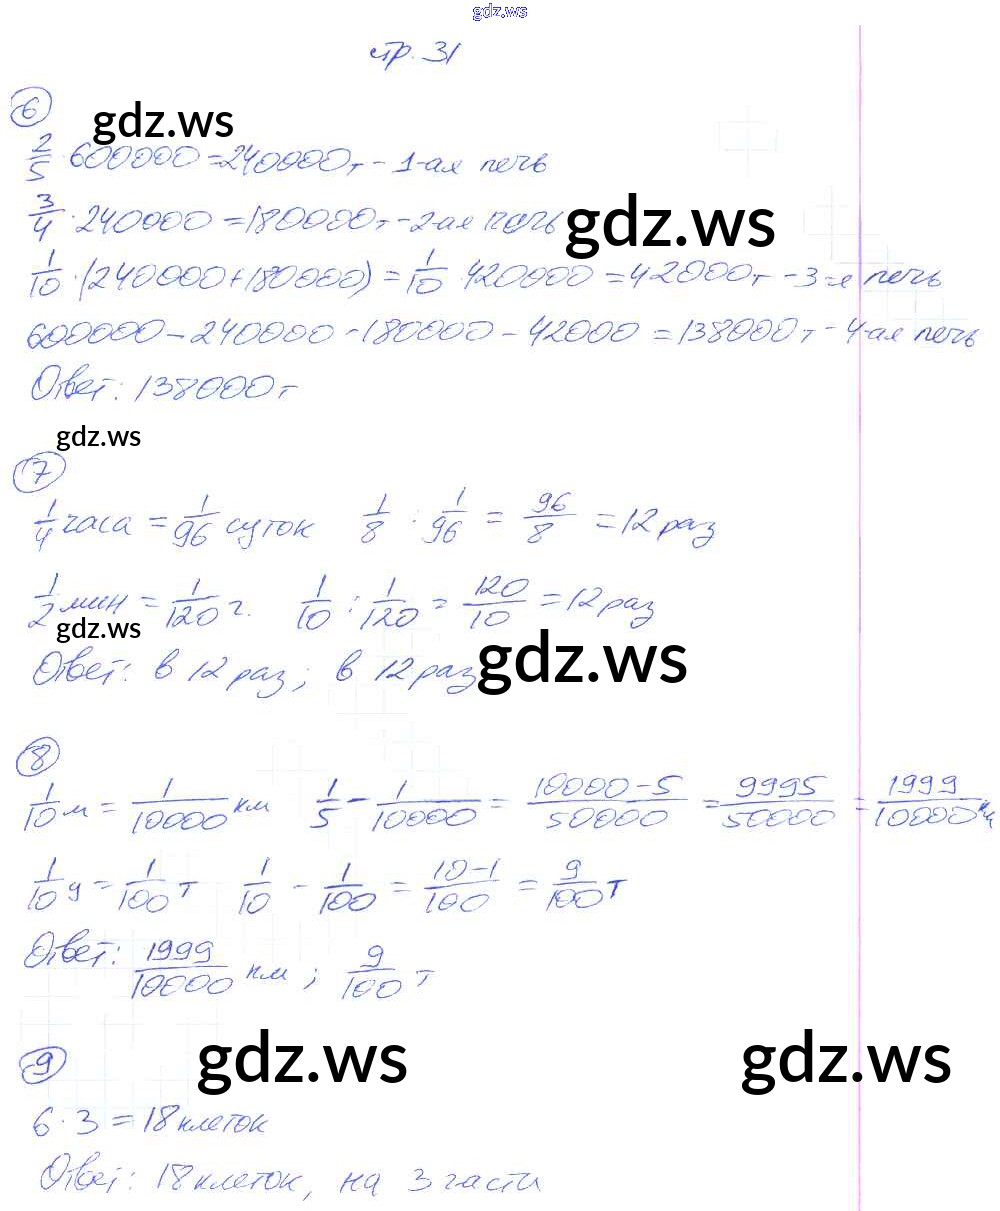 gdz.ws
стр. 31
6
gdz.ws
2/5 · 600000 = 240000т - 1-ая печь
3/4 · 240000 = 180000т - 2-ая печь
gdz.ws
1/10 · (240000 + 180000) = 1/10 · 420000 = 42000т - 3-я печь
600000 - 240000 - 180000 - 42000 = 138000т - 4-ая печь
Ответ: 138000т
gdz.ws
7
1/4 часа = 1/96 суток 1/8 : 1/96 = 96/8 = 12 раз
1/2 мин = 1/120 ч. 1/10 : 1/120 = 120/10 = 12 раз
gdz.ws
Ответ: в 12 раз; в 12 раз
gdz.ws
8
1/10 м = 1/10000 км 1/5 - 1/10000 = 10000-5/50000 = 9995/50000 = 1999/10000 км
1/10 ц = 1/100 т 1/10 - 1/100 = 10-1/100 = 9/100 т
Ответ: 1999/10000 км; 9/100 т
gdz.ws gdz.ws
9
6 · 3 = 18 клеток
Ответ: 18 клеток, на 3 части